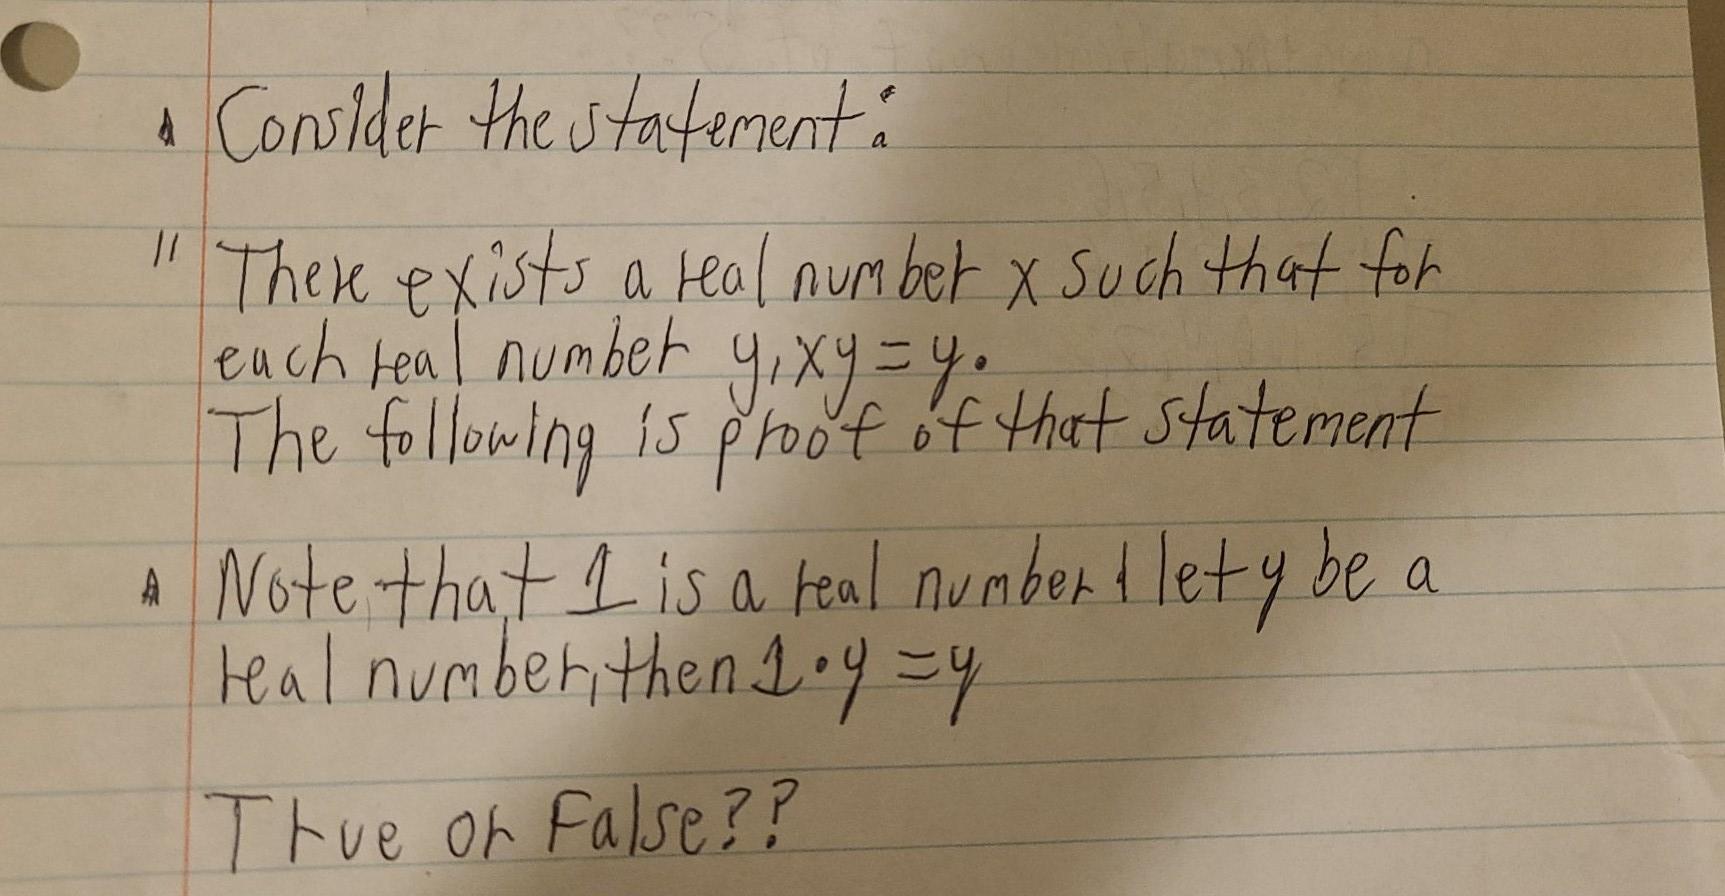 Consider the statement:
" There exists a real number x such that for
each real number y, xy = y.
The following is proof of that statement
Note that 1 is a real number & let y be a
real number, then 1 • y = y
True or False??